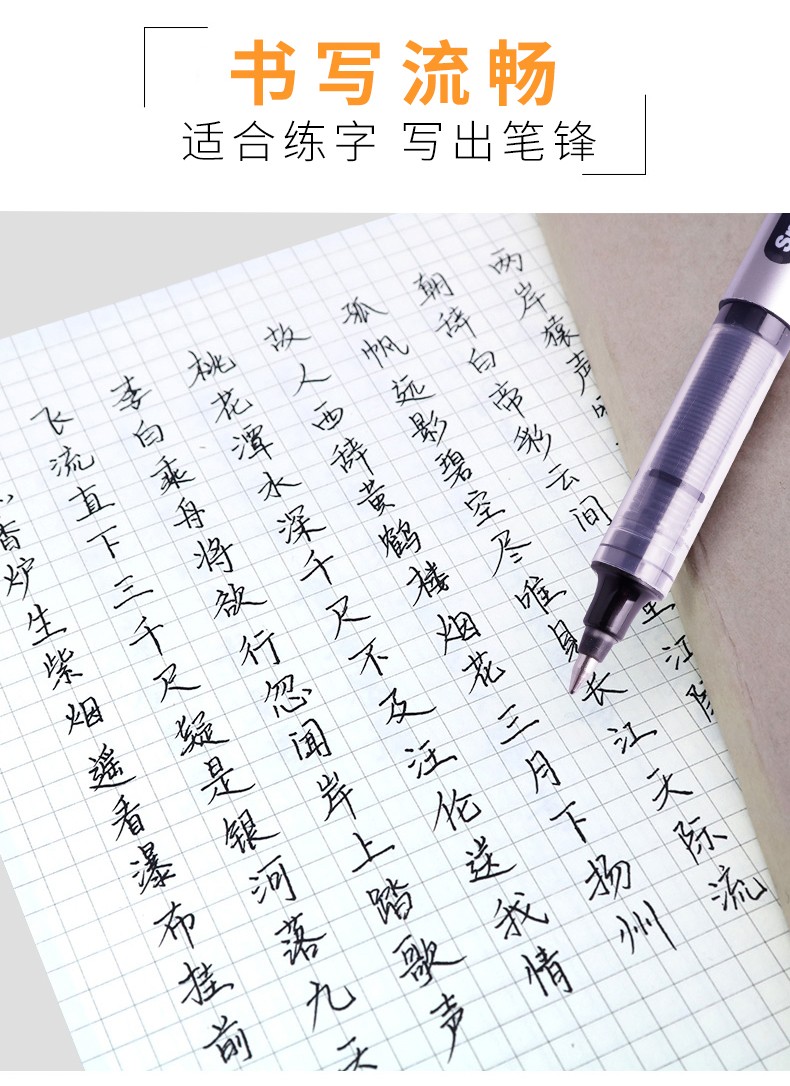 书写流畅
适合练字 写出笔锋
香炉生紫烟遥看瀑布挂前
飞流直下三千尺疑是银河落九天
李白乘舟将欲行忽闻岸上踏歌声
桃花潭水深千尺不及汪伦送我情
故人西辞黄鹤楼烟花三月下扬州
孤帆远影碧空尽唯见长江天际流
朝辞白帝彩云间 江
两岸猿声